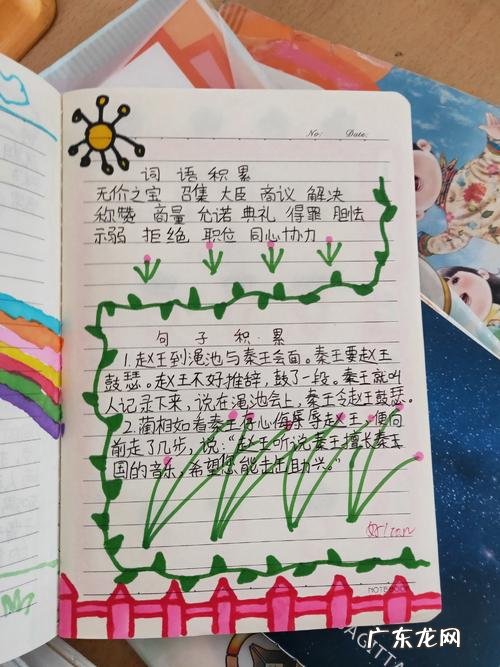 No:    Date:
词 语 积 累
无价之宝 召集 大臣 商议 解决
称赞 商量 允诺 典礼 得罪 胆怯
示弱 拒绝 职位 同心协力
句 子 积 累
1.赵王到渑池与秦王会面。秦王要赵王
鼓瑟。赵王不好推辞,鼓了一段。秦王就叫
人记录下来,说在渑池会上,秦王令赵王鼓瑟。
2.蔺相如看秦王存心侮辱赵王,便向
前走了几步,说:“赵王听说秦王擅长秦
国的音乐,希望您能击缶助兴。”
NOTEBOOK
SAGITTA
广东龙网